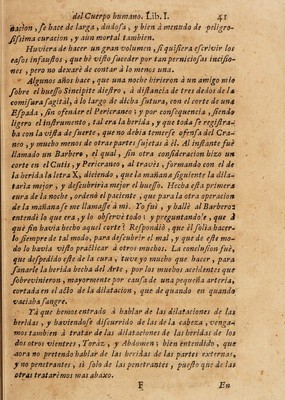 del Cuerpo humano. Lib. I. 41
nacion, se hace de larga, dudosa, y bien à menudo de peligro-
sissima curacion, y aun mortal tambien.
Huviera de hacer un gran volumen, si quisiera escrivir los
casos infaustos, que hè visto suceder por tan perniciosas incisio-
nes, pero no dexarè de contar à lo menos una.
Algunos años hace, que una noche hirieron à un amigo mio
sobre el huesso Sincipite diestro, à distancia de tres dedos de la
comisura sagital, à lo largo de dicha sutura, con el corte de una
Espada, sin ofender el Pericraneo; y por consequencia, siendo
ligero el instrumento, tal era la herida, y que toda se registra-
ba con la vista de suerte, que no debia temerse ofensa del Cra-
neo, y mucho menos de otras partes sujetas à èl. Al instante fuè
llamado un Barbero, el qual, sin otra consideracion hizo un
corte en el Cutis, y Pericraneo, al travès, formando con el de
la herida la letra X, diciendo, que la mañana siguiente la dila-
taria mejor, y descubriria mejor el huesso. Hecha esta primera
cura de la noche, ordenò el paciente, que para la otra operacion
de la mañana se me llamasse à mi. Yo fuì, y hallè al Barbero:
entendì lo que era, y lo observè todo: y preguntandole, que à
què fin havia hecho aquel corte? Respondiò, que èl solia hacer-
lo siempre de tal modo, para descubrir el mal, y que de este mo-
do lo havia visto practicar à otros muchos. La conclusion fuè,
que despedido este de la cura, tuve yo mucho que hacer, para
sanarle la herida hecha del Arte, por los muchos accidentes que
sobrevinieron, mayormente por causa de una pequeña arteria,
cortada en el acto de la dilatacion, que de quando en quando
vaciaba sangre.
Yà que hemos entrado à hablar de las dilataciones de las
heridas, y haviendose discurrido de las de la cabeza, venga-
mos tambien à tratar de las dilataciones de las heridas de los
dos otros vientres, Toraz, y Abdomen; bien entendido, que
aora no pretendo hablar de las heridas de las partes externas,
y no penetrantes, si solo de las penetrantes, puesto que de las
otras tratarèmos mas abaxo.
F En